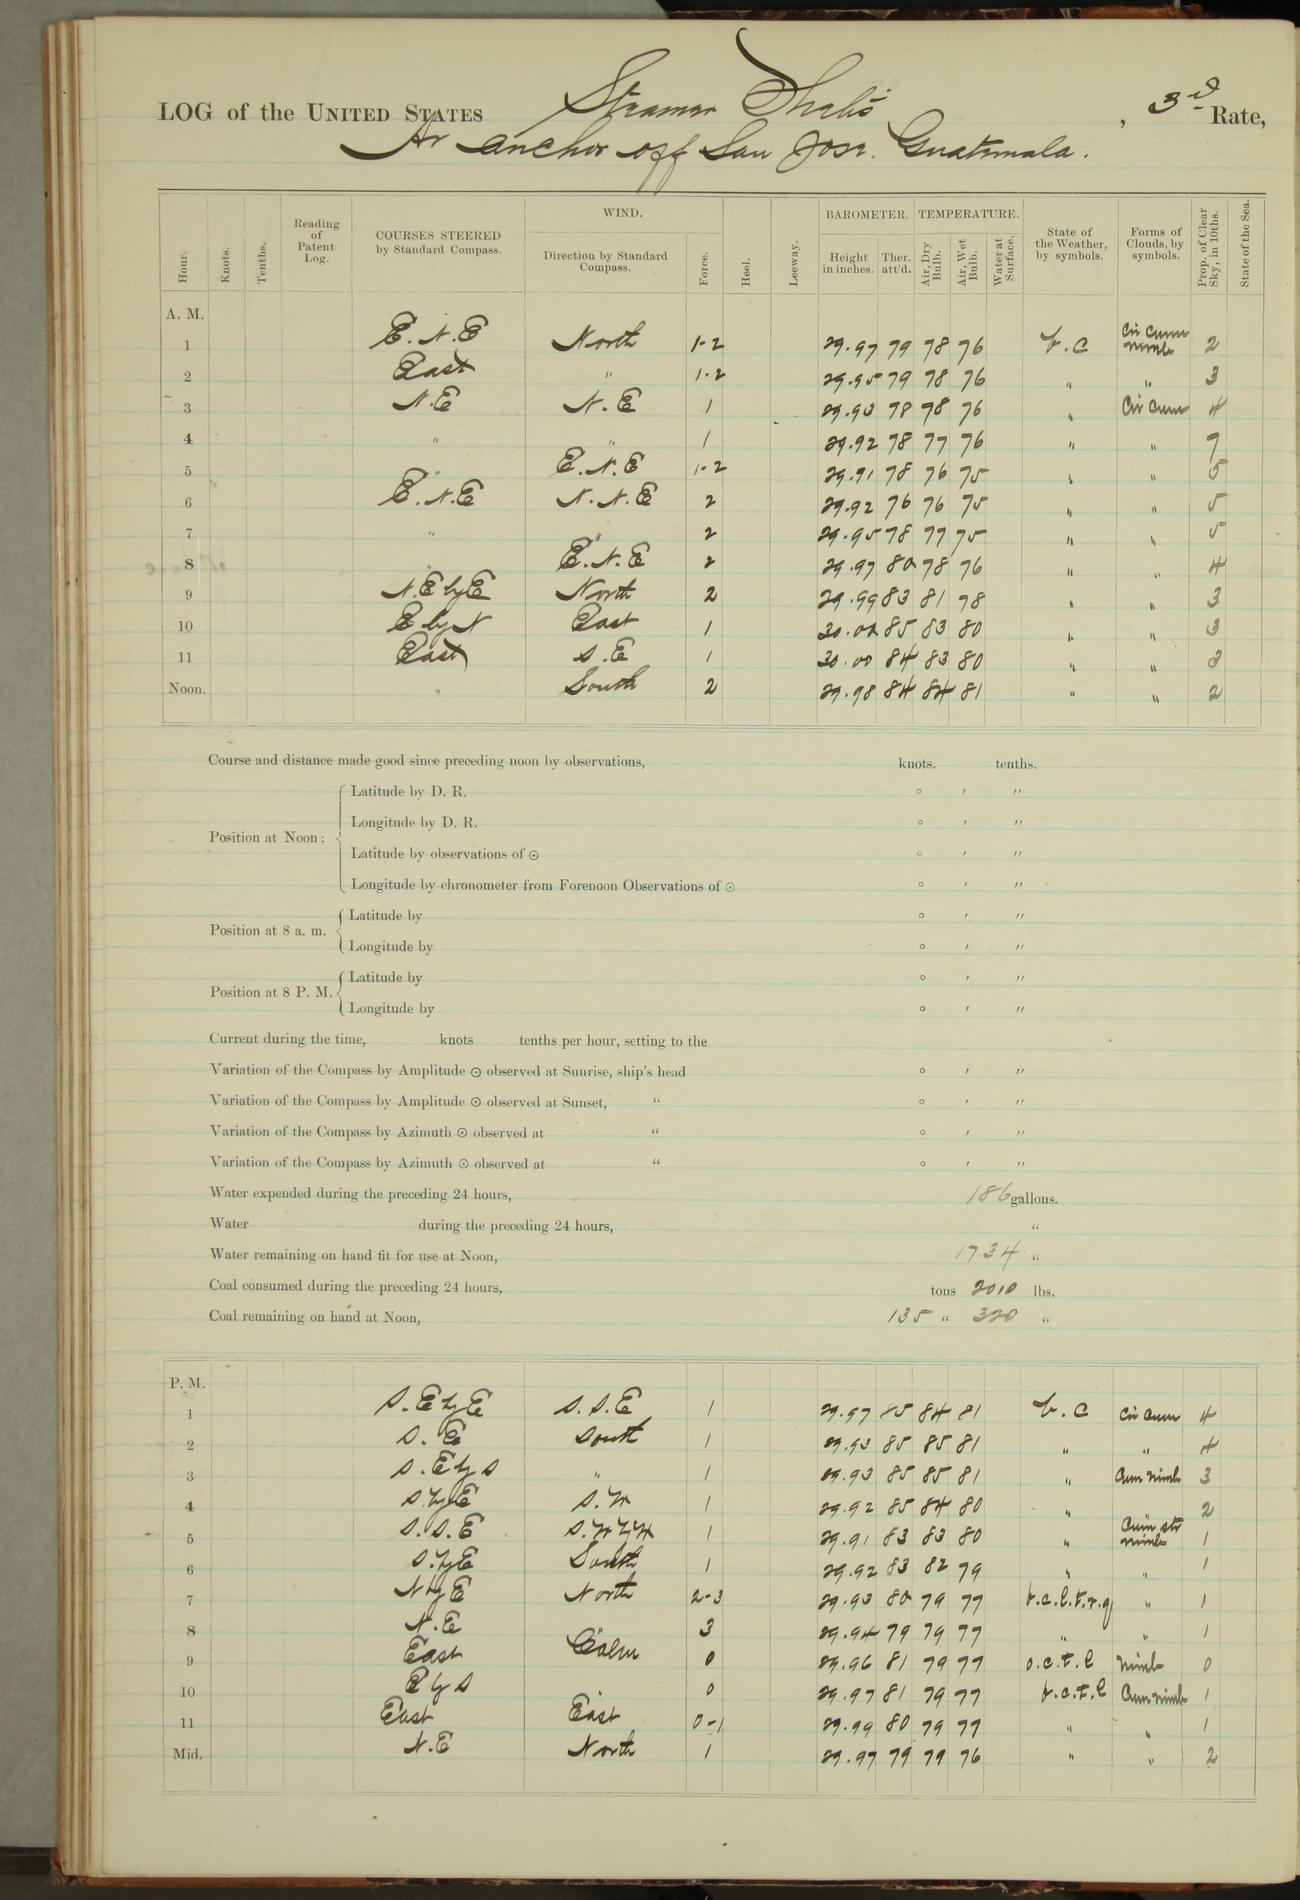 LOG of the UNITED STATES Steamer Thetis, 3rd Rate,
At anchor off San Jose. Guatemala.
Hour. Knots. Tenths. Reading of Patent Log. COURSES STEERED by Standard Compass. WIND. Direction by Standard Compass. Force. Heel. Leeway. BAROMETER. Height in inches. Ther. att'd. TEMPERATURE. Air, Dry Bulb. Air, Wet Bulb. Water at Surface. State of the Weather, by symbols. Forms of Clouds, by symbols. Prop. of Clear Sky, in 10ths. State of the Sea.
A. M.
1 E.N.E North 1-2 29.97 79 78 76 b.c Cir Cum Nimb 2
2 East " 1-2 29.95 79 78 76 " " 3
3 N.E N.E 1 29.93 78 78 76 " Cir Cum 4
4 " " 1 29.92 78 77 76 " " 7
5 " E.N.E 1-2 29.91 78 76 75 " " 5
6 E.N.E N.N.E 2 29.92 76 76 75 " " 5
7 " " 2 29.95 78 77 75 " " 5
8 " E.N.E 2 29.97 80 78 76 " " 4
9 N.E by E North 2 29.99 83 81 78 " " 3
10 E by N East 1 30.00 85 83 80 " " 3
11 East S.E 1 30.00 84 83 80 " " 3
Noon. " South 2 29.98 84 84 81 " " 2
Course and distance made good since preceding noon by observations, knots. tenths.
Position at Noon: Latitude by D. R. ° ′ ″
Longitude by D. R. ° ′ ″
Latitude by observations of ☉ ° ′ ″
Longitude by chronometer from Forenoon Observations of ☉ ° ′ ″
Position at 8 a. m. Latitude by ° ′ ″
Longitude by ° ′ ″
Position at 8 P. M. Latitude by ° ′ ″
Longitude by ° ′ ″
Current during the time, knots tenths per hour, setting to the
Variation of the Compass by Amplitude ☉ observed at Sunrise, ship's head ° ′ ″
Variation of the Compass by Amplitude ☉ observed at Sunset, " ° ′ ″
Variation of the Compass by Azimuth ☉ observed at " ° ′ ″
Variation of the Compass by Azimuth ☉ observed at " ° ′ ″
Water expended during the preceding 24 hours, 186 gallons.
Water during the preceding 24 hours, "
Water remaining on hand fit for use at Noon, 1734 "
Coal consumed during the preceding 24 hours, tons 2010 lbs.
Coal remaining on hand at Noon, 135 " 320 "
P. M.
1 S.E by E S.S.E 1 29.97 85 84 81 b.c Cir Cum 4
2 S.E South 1 29.93 85 85 81 " " 4
3 S.E by S " 1 29.93 85 85 81 " Cum Nimb 3
4 S. by E S.W 1 29.92 85 84 80 " " 2
5 S.S.E S.W by W 1 29.91 83 83 80 " Cum Str Nimb 1
6 S. by E South 1 29.92 83 82 79 " " 1
7 N by E North 2-3 29.93 80 79 77 b.c.l.t.r.q " 1
8 N.E " 3 29.94 79 79 77 " " 1
9 East Calm 0 29.96 81 79 77 o.c.t.l Nimb 0
10 E by S " 0 29.97 81 79 77 b.c.t.l Cum Nimb 1
11 East East 0-1 29.99 80 79 77 " " 1
Mid. N.E North 1 29.97 79 79 76 " " 2